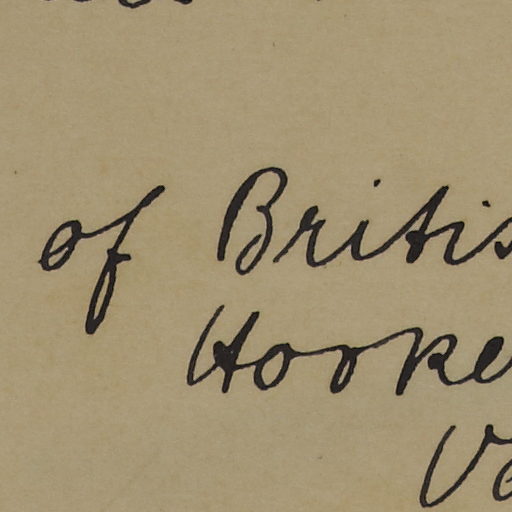 of Britis
Hooke
Vo